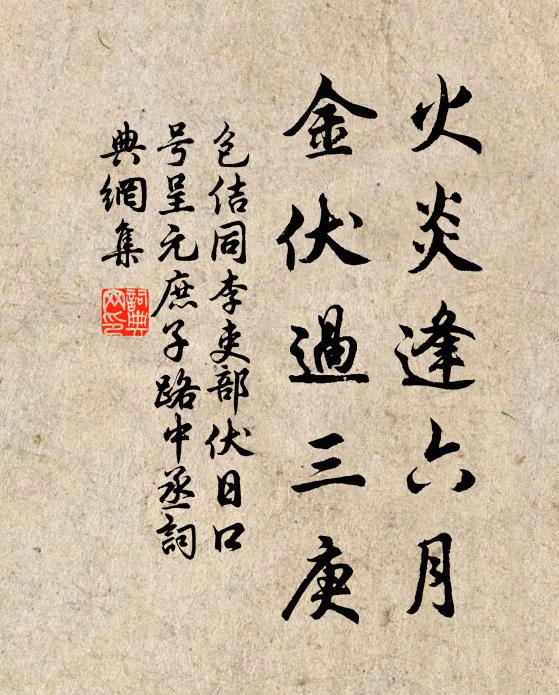 火炎逢六月
金伏過三庚
包佶同李吏部伏日口
号呈元庶子路中丞詞
典網集
詞典
网印